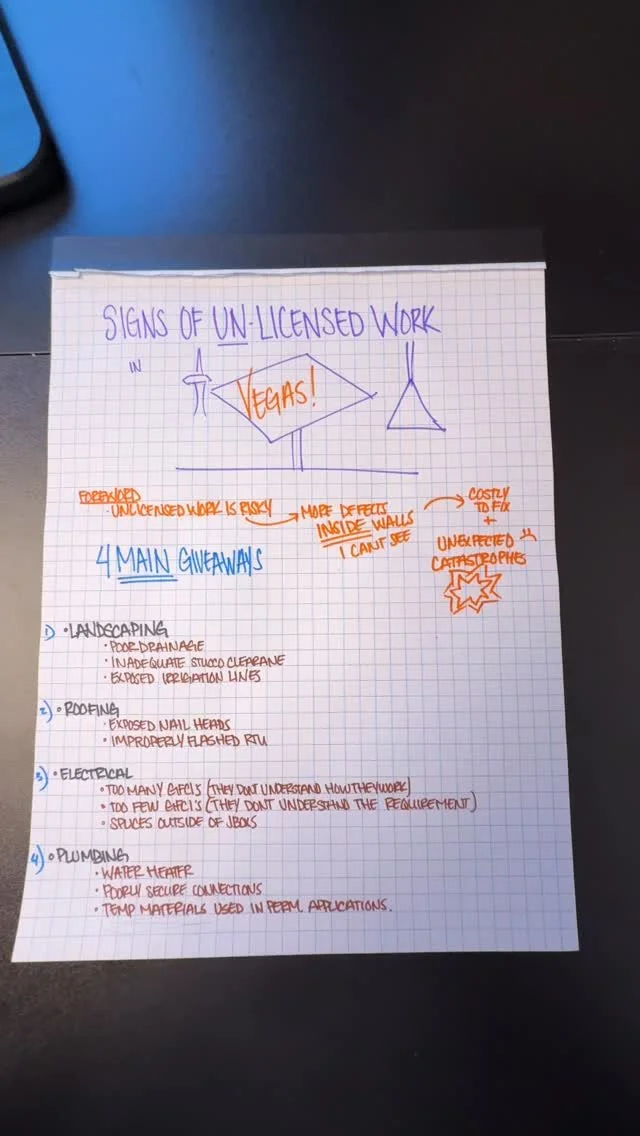 SIGNS OF UN-LICENSED WORK
IN
VEGAS!
FOREWORD
· UNLICENSED WORK IS RISKY
MORE DEFECTS
INSIDE WALLS
I CANT SEE
COSTLY
TO FIX
+
UNEXPECTED
CATASTROPHES
4 MAIN GIVEAWAYS
1) · LANDSCAPING
· POOR DRAINAGE
· INADEQUATE STUCCO CLEARANE
· EXPOSED IRRIGATION LINES
2) · ROOFING
· EXPOSED NAIL HEADS
· IMPROPERLY FLASHED RTU
3) · ELECTRICAL
· TOO MANY GFCI'S (THEY DONT UNDERSTAND HOW THEY WORK)
· TOO FEW GFCI'S (THEY DONT UNDERSTAND THE REQUIREMENT)
· SPLICES OUTSIDE OF JBOXS
4) · PLUMBING
· WATER HEATER
· POORLY SECURE CONNECTIONS
· TEMP MATERIALS USED IN PERM APPLICATIONS.